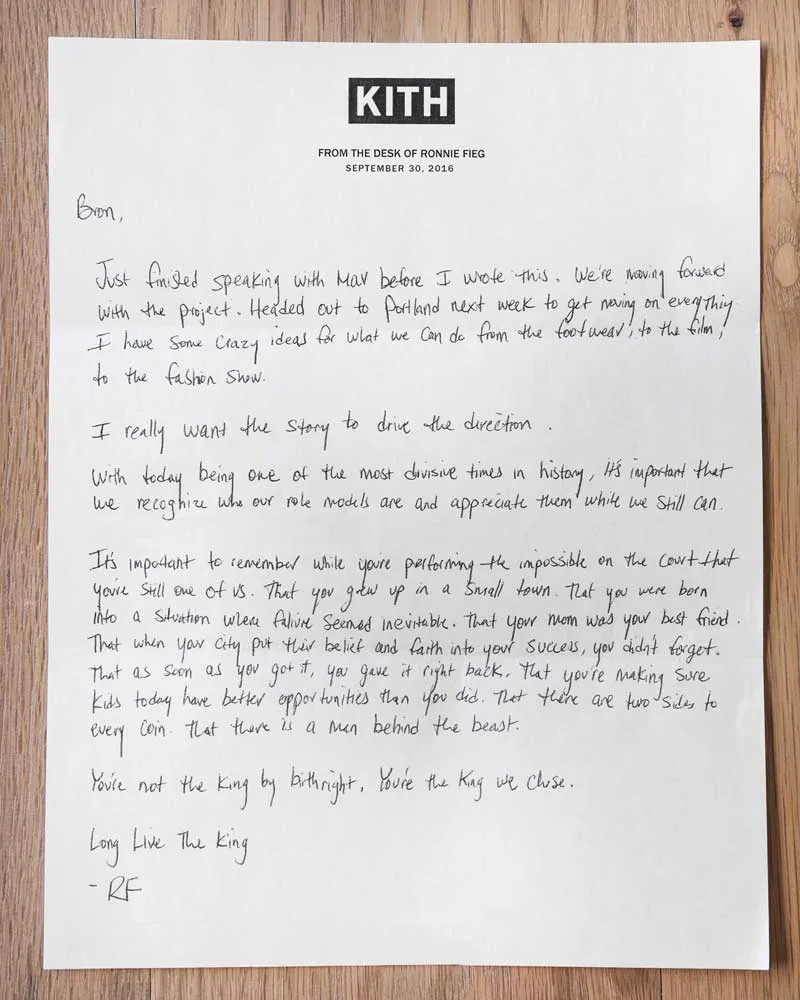 KITH
FROM THE DESK OF RONNIE FIEG
SEPTEMBER 30, 2016
Bron,
Just finished speaking with Mav before I wrote this. We're moving forward
with the project. Headed out to Portland next week to get moving on everything
I have some crazy ideas for what we can do from the footwear, to the film,
to the fashion show.
I really want the story to drive the direction.
With today being one of the most divisive times in history, it's important that
we recognize who our role models are and appreciate them while we still can.
It's important to remember while you're performing the impossible on the court that
you're still one of us. That you grew up in a small town. That you were born
into a situation where falire seemed inevitable. That your mom was your best friend.
That when your city put their belief and faith into your success, you didn't forget.
That as soon as you got it, you gave it right back. That you're making sure
kids today have better opportunities than you did. That there are two sides to
every coin. That there is a man behind the beast.
You're not the King by birthright, You're the King we chose.
Long Live The King
- RF